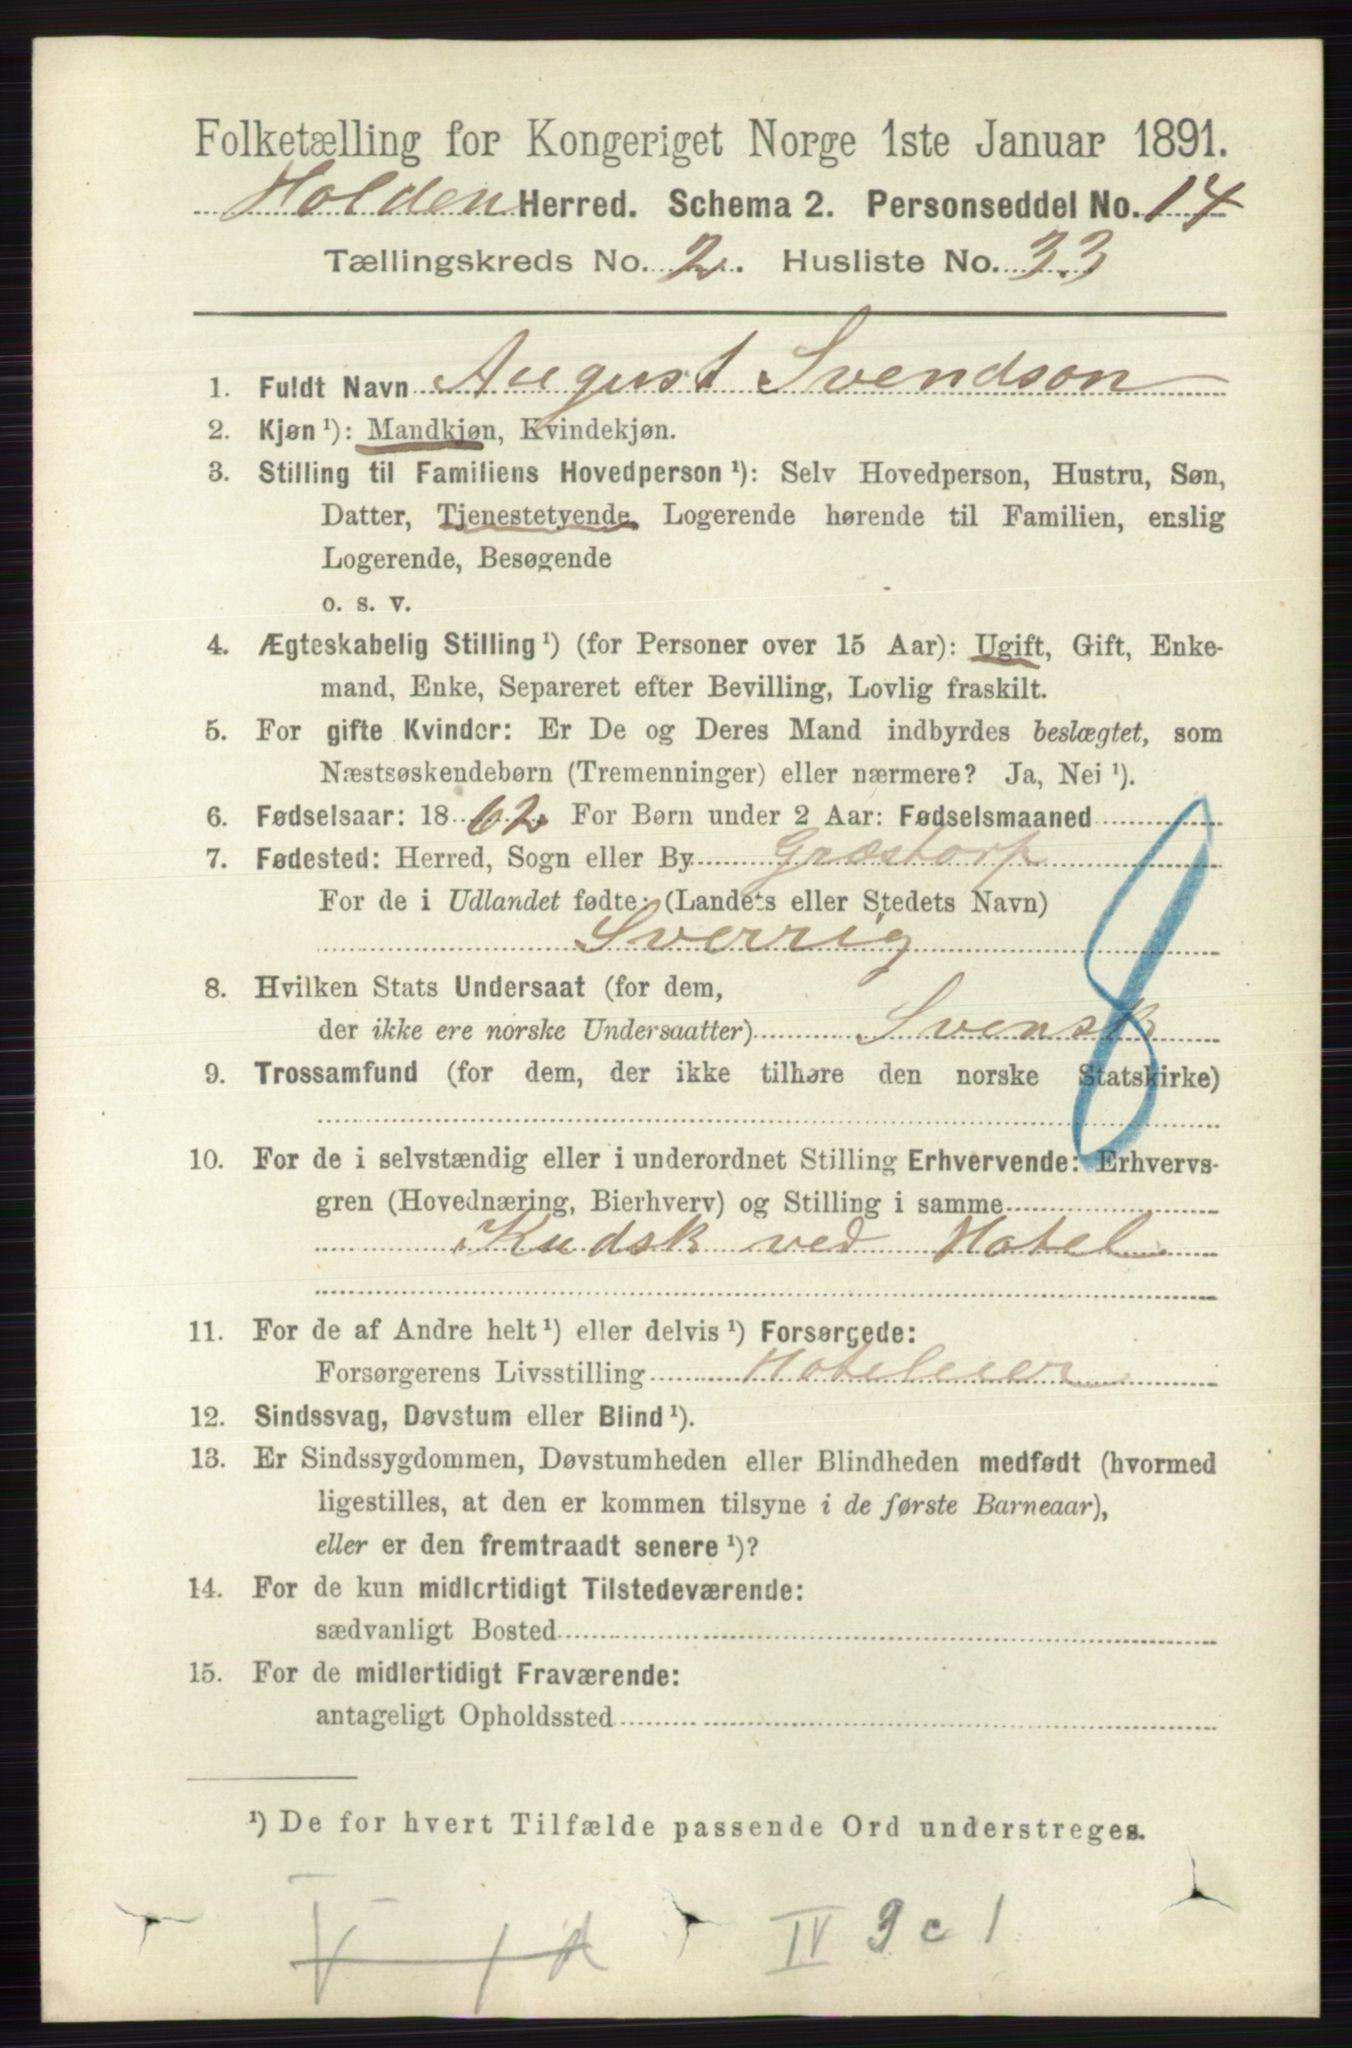 Folketælling for Kongeriget Norge 1ste Januar 1891.
Holden Herred. Schema 2. Personseddel No. 14
Tællingskreds No. 2. Husliste No. 33
1. Fuldt Navn August Svendson
2. Kjøn ¹): Mandkjøn, Kvindekjøn.
3. Stilling til Familiens Hovedperson ¹): Selv Hovedperson, Hustru, Søn,
Datter, Tjenestetyende, Logerende hørende til Familien, enslig
Logerende, Besøgende
o. s. v.
4. Ægteskabelig Stilling ¹) (for Personer over 15 Aar): Ugift, Gift, Enke-
mand, Enke, Separeret efter Bevilling, Lovlig fraskilt.
5. For gifte Kvinder: Er De og Deres Mand indbyrdes beslægtet, som
Næstsøskendebørn (Tremenninger) eller nærmere? Ja, Nei ¹).
6. Fødselsaar: 1862 For Børn under 2 Aar: Fødselsmaaned
7. Fødested: Herred, Sogn eller By Græstorp
For de i Udlandet fødte: (Landets eller Stedets Navn)
Sverrig
8. Hvilken Stats Undersaat (for dem,
der ikke ere norske Undersaatter) Svensk
9. Trossamfund (for dem, der ikke tilhøre den norske Statskirke)
10. For de i selvstændig eller i underordnet Stilling Erhvervende: Erhvervs-
gren (Hovednæring, Bierhverv) og Stilling i samme
Kudsk ved Hotel
11. For de af Andre helt ¹) eller delvis ¹) Forsørgede:
Forsørgerens Livsstilling Hoteleier
12. Sindssvag, Døvstum eller Blind ¹).
13. Er Sindssygdommen, Døvstumheden eller Blindheden medfødt (hvormed
ligestilles, at den er kommen tilsyne i de første Barneaar),
eller er den fremtraadt senere ¹)?
14. For de kun midlertidigt Tilstedeværende:
sædvanligt Bosted
15. For de midlertidigt Fraværende:
antageligt Opholdssted
8
¹) De for hvert Tilfælde passende Ord understreges.
IV 9 c 1